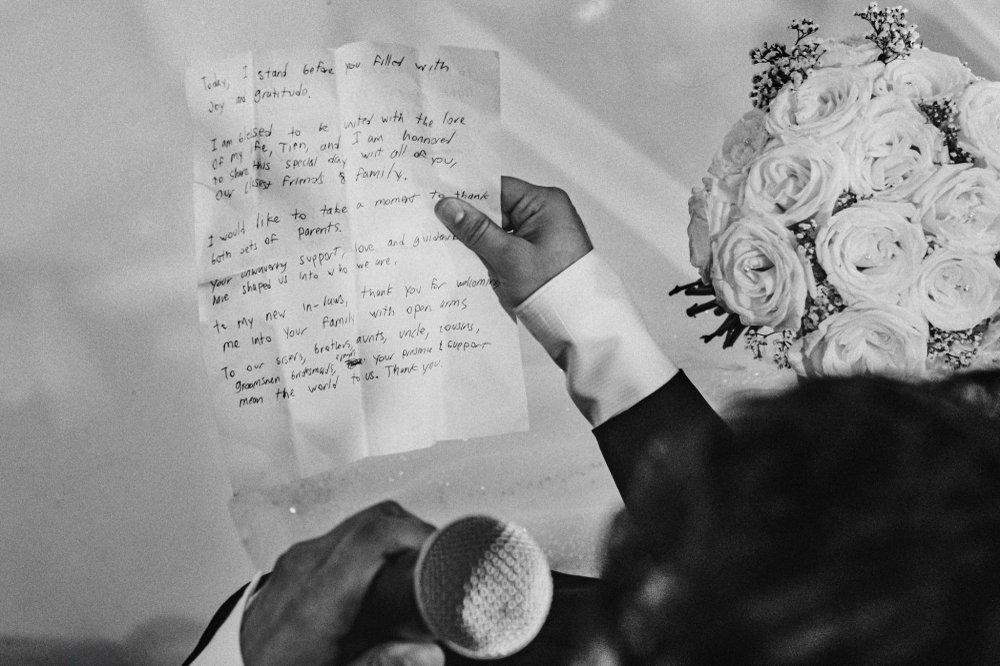 Today, I stand before you filled with
Joy and gratitude.
I am blessed to be united with the love
of my life, Tien, and I am honored
to share this special day with all of you,
our closest friends & family.
I would like to take a moment to thank
both sets of parents.
Your unwavering support, love, and guidance
have shaped us into who we are.
to my new in-laws, thank you for welcoming
me into your family with open arms
To our sisters, brothers, aunts, uncle, cousins,
groomsmen bridesmaids, your presence & support
mean the world to us. Thank you.